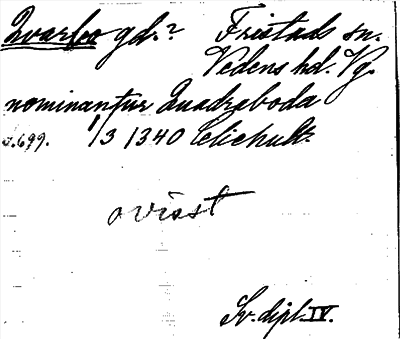 Qvarbo gd.? Fristads sn.
Vedens hd. Vg.
nominantur Quadzaboda
s.699. 1/3 1340 Elichult.
ovisst
Sv. dipl. IV.